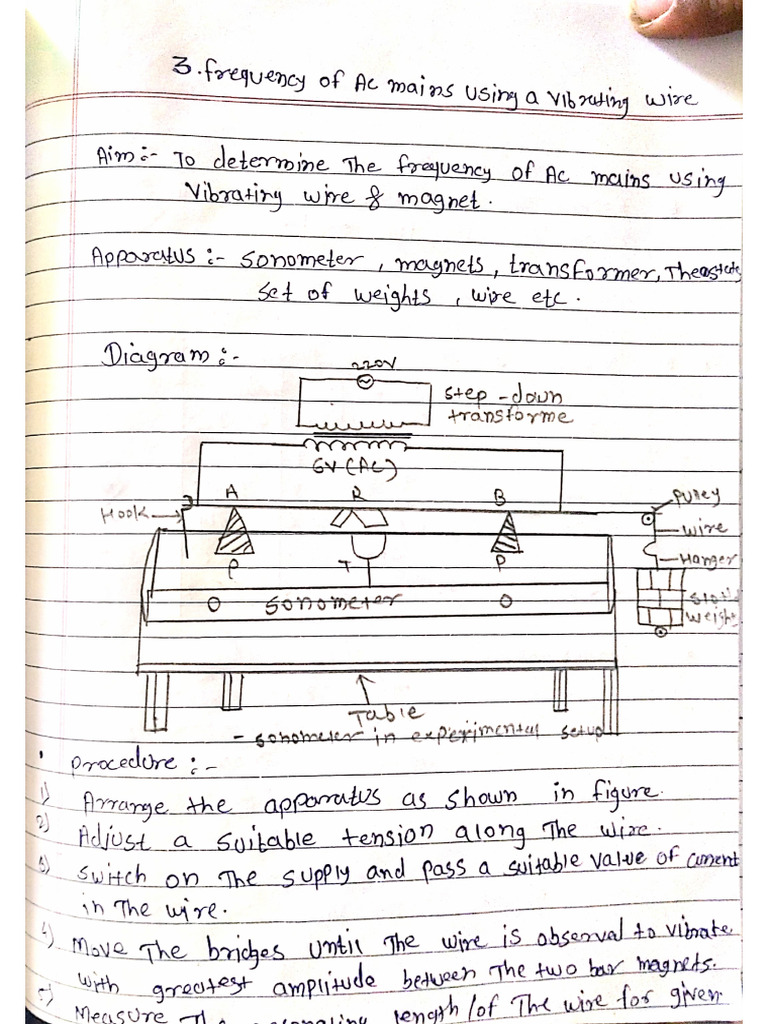 3. frequency of Ac mains using a vibrating wire
Aim:- To determine The frequency of Ac mains using
Vibrating wire & magnet.
Apparatus:- sonometer, magnets, transformer,
set of weights, wire etc.
Diagram:-
220V
step-down
transforme
6V(AC)
A R B
Hook
Pulley
wire
Hanger
P T P
sonometer
weight
Table
- sonometer in experimental setup
• procedure:-
1) Arrange the apparatus as shown in figure.
2) Adjust a suitable tension along The wire.
3) switch on The supply and pass a suitable value of current
in The wire.
4) Move The bridges until The wire is observed to vibrate
with greatest amplitude between The two bar magnets.
5) Measure The length l of The wire for given